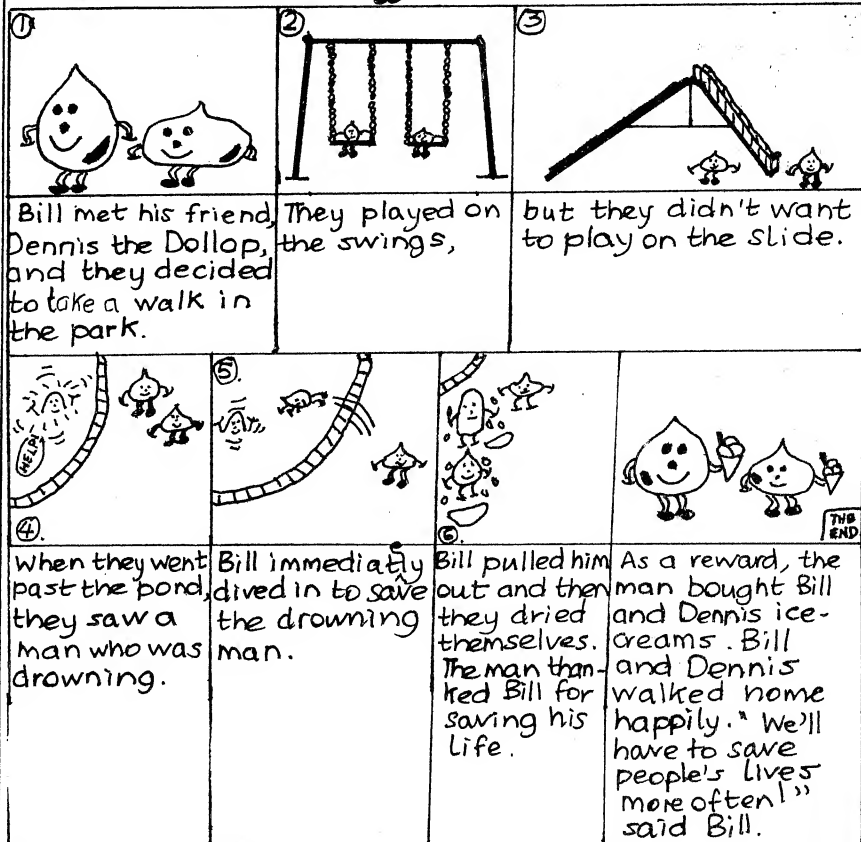 ①
②
③
Bill met his friend,
Dennis the Dollop,
and they decided
to take a walk in
the park.
They played on
the swings,
but they didn't want
to play on the slide.
HELP!
④.
When they went
past the pond,
they saw a
man who was
drowning.
⑤.
Bill immediatly
dived in to save
the drowning
man.
⑥.
Bill pulled him
out and then
they dried
themselves.
The man than-
ked Bill for
saving his
life.
THE
END
As a reward, the
man bought Bill
and Dennis ice-
creams. Bill
and Dennis
walked home
happily. "We'll
have to save
people's lives
more often!"
said Bill.